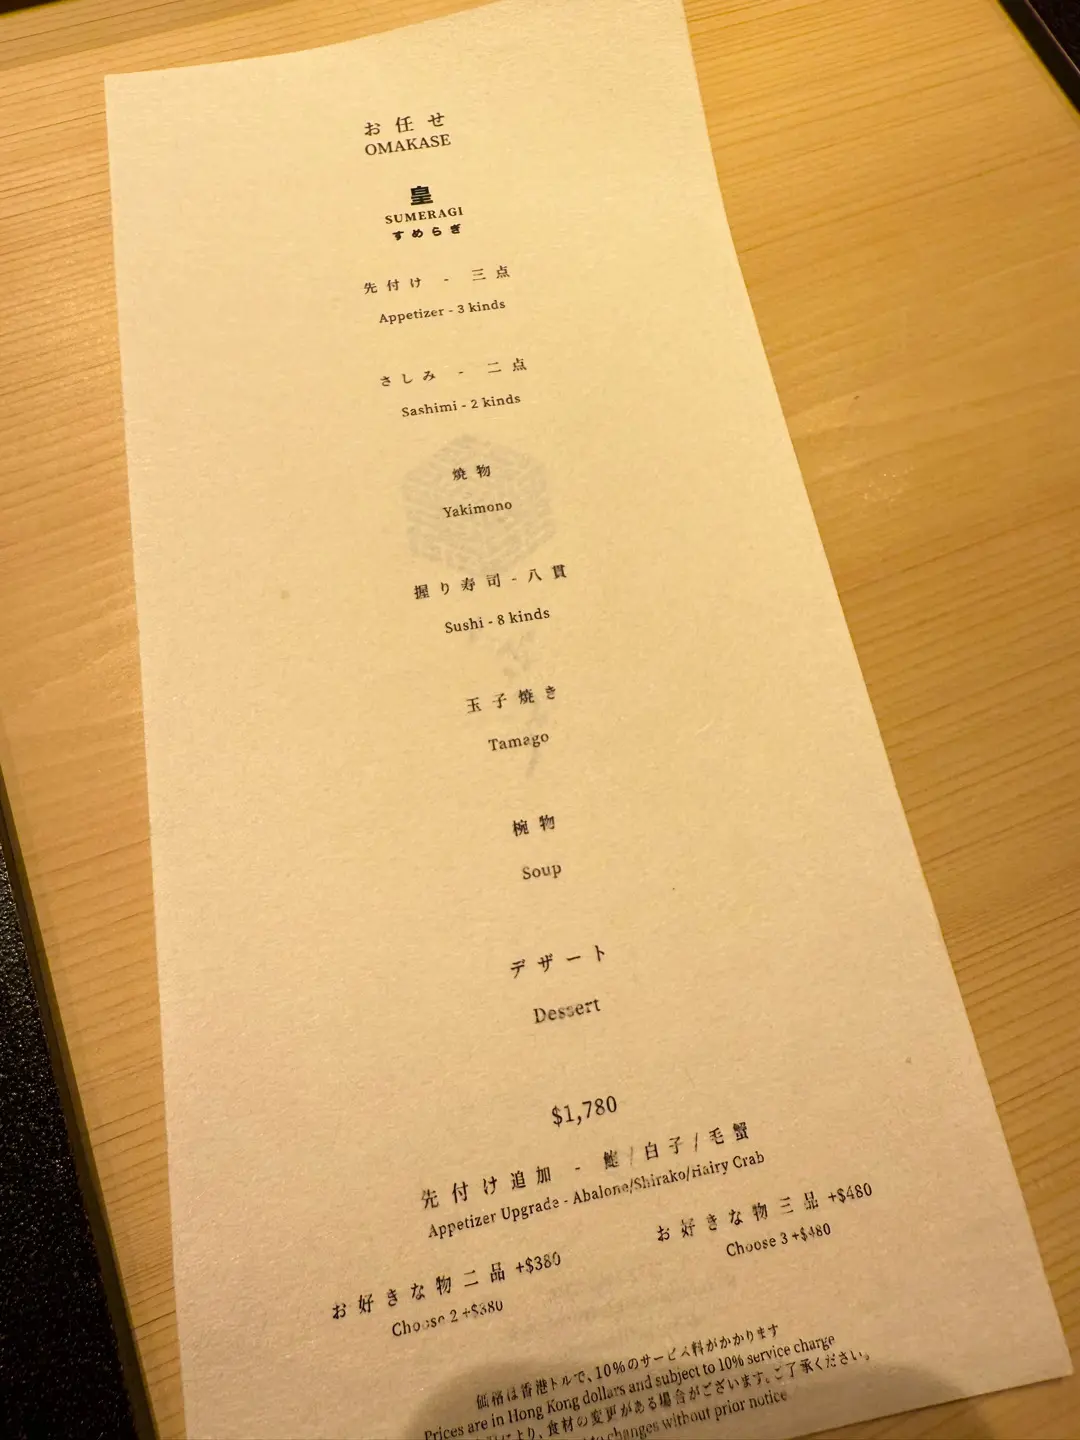 お任せ
OMAKASE
皇
SUMERAGI
すめらぎ
先付け - 三点
Appetizer - 3 kinds
さしみ - 二点
Sashimi - 2 kinds
焼物
Yakimono
握り寿司 - 八貫
Sushi - 8 kinds
玉子焼き
Tamago
椀物
Soup
デザート
Dessert
$1,780
先付け追加 - 鮑/白子/毛蟹
Appetizer Upgrade - Abalone/Shirako/Hairy Crab
お好きな物二品 +$380
Choose 2 +$380
お好きな物三品 +$480
Choose 3 +$480
価格は香港ドルで、10%のサービス料がかかります
Prices are in Hong Kong dollars and subject to 10% service charge
により、食材の変更がある場合がございます。ご了承ください。
changes without prior notice